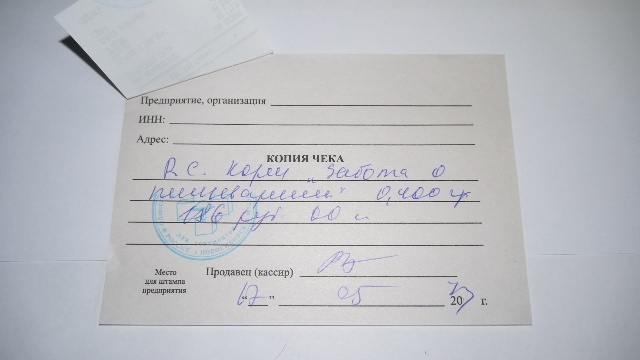 Предприятие, организация
ИНН:
Адрес:
КОПИЯ ЧЕКА
R.C. Корм „Забота о
пищеварении" 0,400 гр
186 руб 00 к
Место для штампа предприятия
Продавец (кассир)
"17" 05 2017 г.